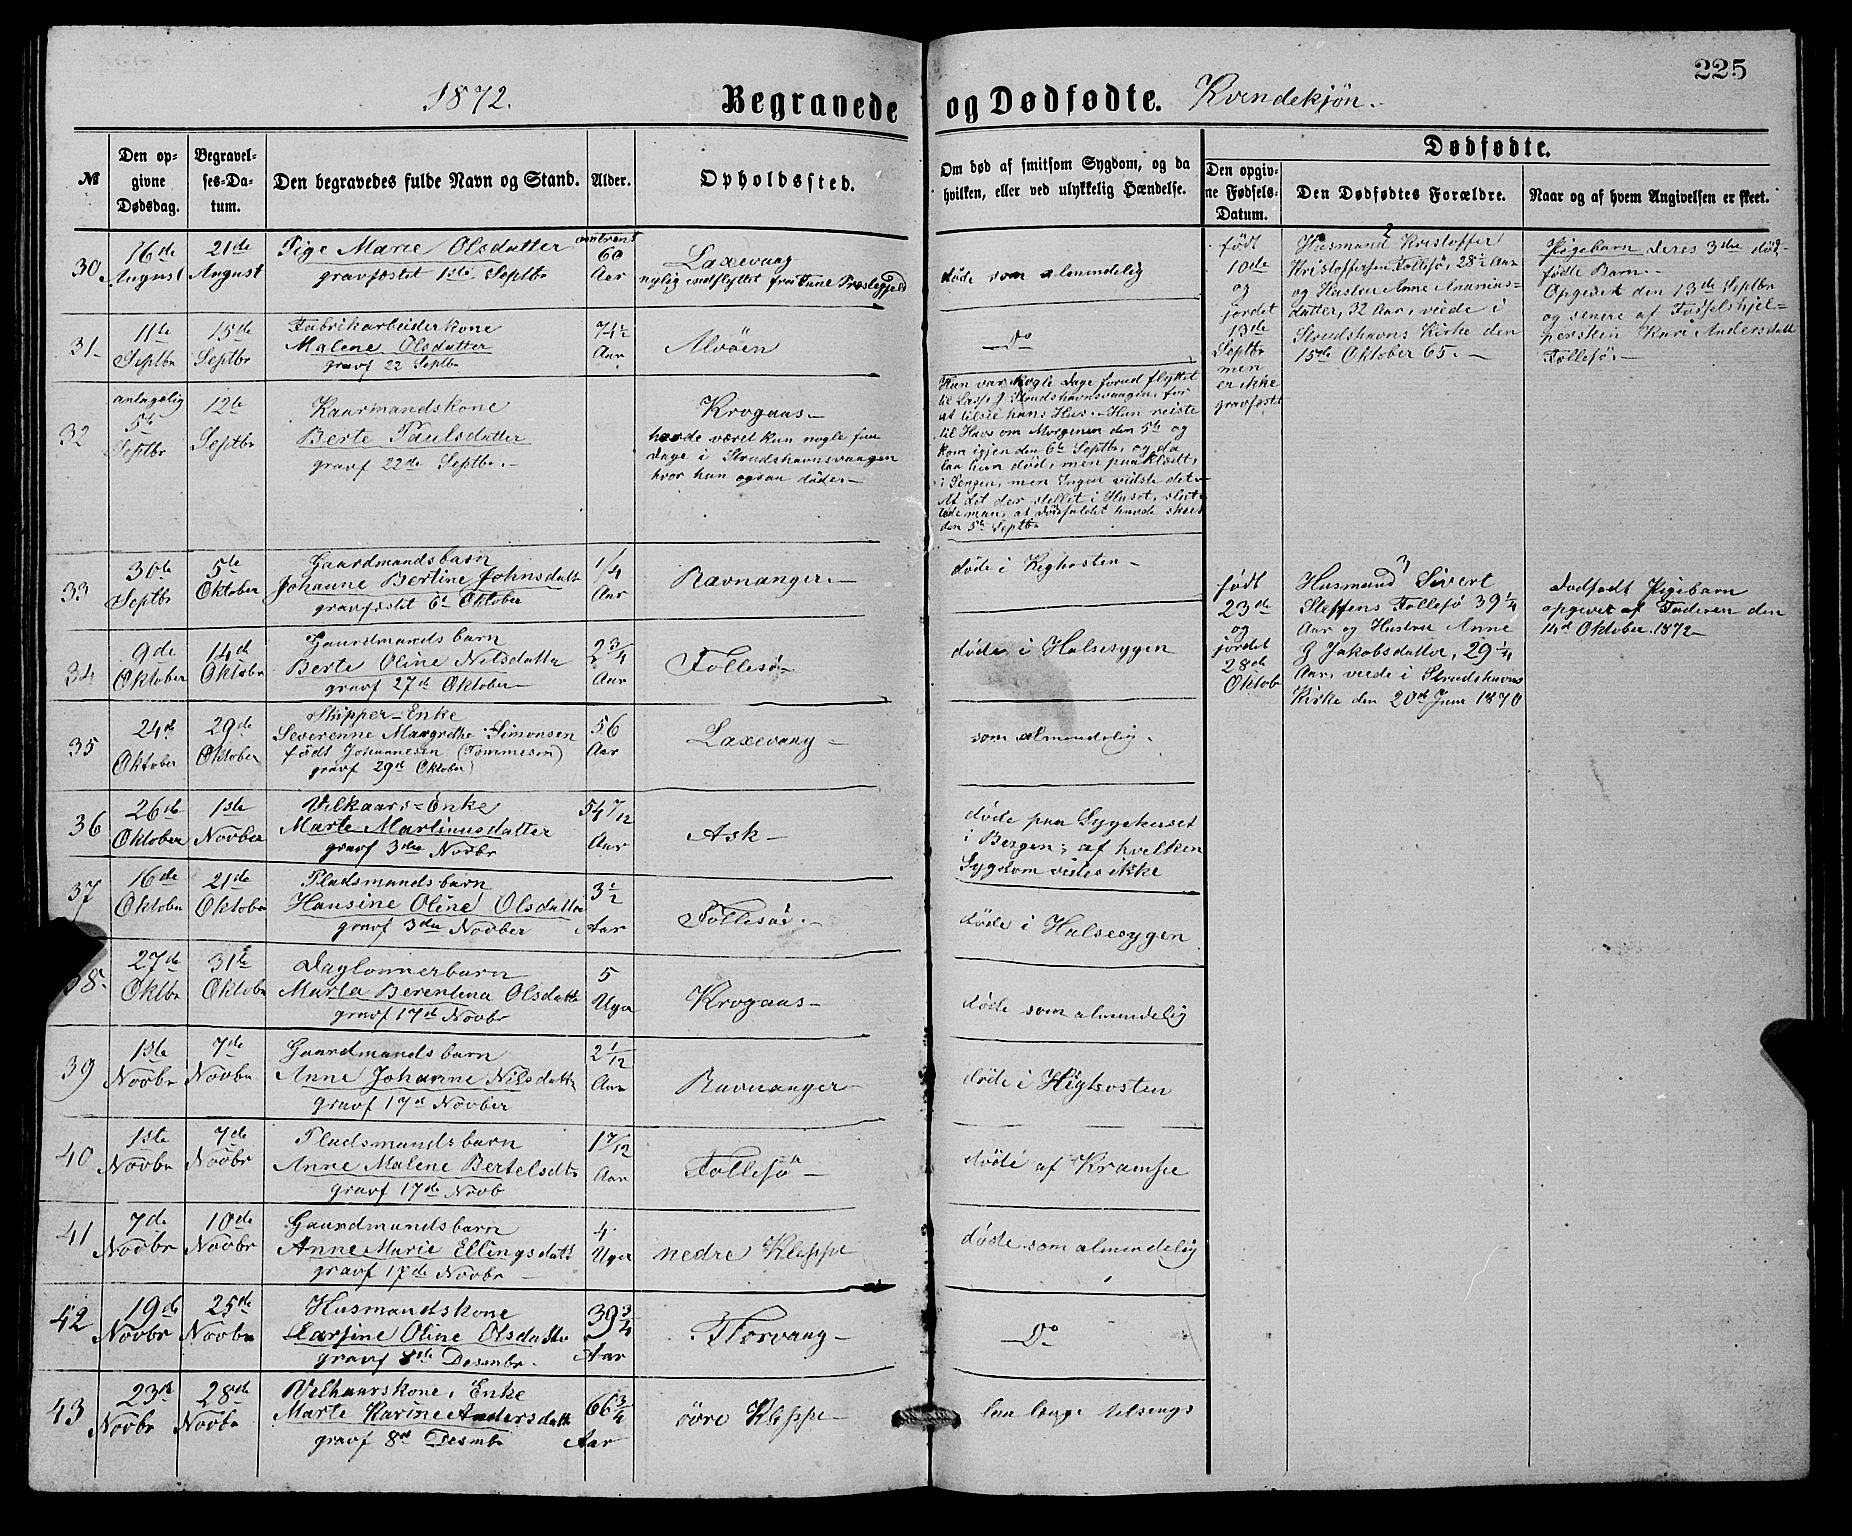 225
1872.
Begravede og Dødfødte. Kvindekjøn.
№
Den opgivne Dødsdag.
Begravelses-Datum.
Den begravedes fulde Navn og Stand.
Alder.
Opholdssted.
Om død af smitsom Sygdom, og da hvilken, eller ved ulykkelig Hændelse.
Dødfødte.
Den opgivne Fødsels-Datum.
Den Dødfødtes Forældre.
Naar og af hvem Angivelsen er skeet.
30
16de August
21de August
Pige Marie Olsdatter
gravfæstet 1ste Septbr
omtrent 60 Aar
Laxevaag
nylig indflyttet fra Fane Præstegjeld
døde som almindelig
31
11te Septbr
15de Septbr
Fabrikarbeiderkone
Malene Olsdatter
gravf 22 Septbr
74½ Aar
Alvøen
Do
32
antagelig 5te Septbr
12te Septbr
Kaarmandskone
Berte Paulsdatter
gravf 22de Septbr.
Krogaas
havde været kun nogle faa
Dage i Strudshavnsvaagen
hvor hun ogsaa døde
Hun var nogle Dage forud flyttet
til Lasse i Strudshavnsvaagen, for
at tilsee hans Hus. Han reiste
til Havs om Morgenen den 5te og
kom igjen den 6te Septbr, og da
laa hun død, men paaklædt,
i Sengen, men Ingen vidste det.
Af det der stellet i Huset, slut-
tede man, at Dødsfaldet havde skeet
den 5te Septbr
33
30te Septbr
5te Oktober
Gaardmandsbarn
Johanne Bertine Johnsdatt
gravfæstet 6te Oktober
1/4 Aar
Ravnanger
døde i Kighosten
34
9de Oktober
14de Oktobr
Gaardmandsbarn
Berte Oline Nilsdatter
gravf 27de Oktober
2 3/4 Aar
Follesø
døde i Halsesygen
35
24de Oktober
29de Oktober
Skipper-Enke
Severenne Margrethe Simonsen
født Johannesen (Tommesen)
gravf 29de Oktober
56 Aar
Laxevaag
som almindelig.
36
26de Oktober
1ste Novber
Vilkaars-Enke
Marte Martinusdatter
gravf 3die Novbr
54 7/12 Aar
Ask
døde paa Sygehuset
i Bergen; af hvilken
Sygdom vides ikke
37
16de Oktobr
21de Oktobr
Pladsmandsbarn
Hansine Oline Olsdatter
gravf 3die Novber
3½ Aar
Follesø
døde i Halsesygen
38
27de Oktbr
31te Oktobr
Daglønnerbarn
Marta Berentina Olsdatte
gravf 17de Novbr
5 Uger
Krogaas
døde som almindelig
39
1ste Novbr
7de Novbr
Gaardmandsbarn
Anne Johanne Nilsdatte
gravf 17de Novber
2 1/12 Aar
Ravnanger
døde i Kighosten
40
1ste Novbr
7de Novbr
Pladsmandsbarn
Anne Malene Bertelsdtr
gravf 17de Novb
1 7/12 Aar
Follesø
døde af Krampe
41
7de Novbr
10de Novbr
Gaardmandsbarn
Anne Marie Ellingsdatt
gravf 17de Novbr
4 Uger
nedre Kleppe
døde som almindelig
42
19de Novbr
25de Novbr
Husmandskone
Larsine Oline Olsdatter
gravf 8de Desmbr.
39 3/4 Aar
Florvaag
Do
43
23de Novbr
28de Novbr
Vilkaarskone, Enke
Marte Karine Andersdatte
gravf 8de Desmbr
66 3/4 Aar
øvre Kleppe
laa længe tilsengs
født 10de og jordet 13de Septbr men er ikke gravfæstet
2
Husmand Kristoffer
Kristoffersen Follesø, 28½ Aar
og Hustru Anne Ananias-
datter, 32 Aar, viede i
Strudshavns Kirke den
15de Oktober 65.
Pigebarn deres 3die død-
fødte Barn.
Opgivet den 13de Septbr
og senere af Fødselshjel-
persken Kari Andersdatt
Follesø.
født 23de og jordet 28de Oktob
3
Husmand Sivert
Steffens Follesø 39 1/4
Aar og Hustru Anne
G Jakobsdatter, 29 1/4
Aar, viede i Strudshavns
Kirke den 20de Juni 1870
Dødfødt Pigebarn
opgivet af Faderen den
14de Oktober 1872